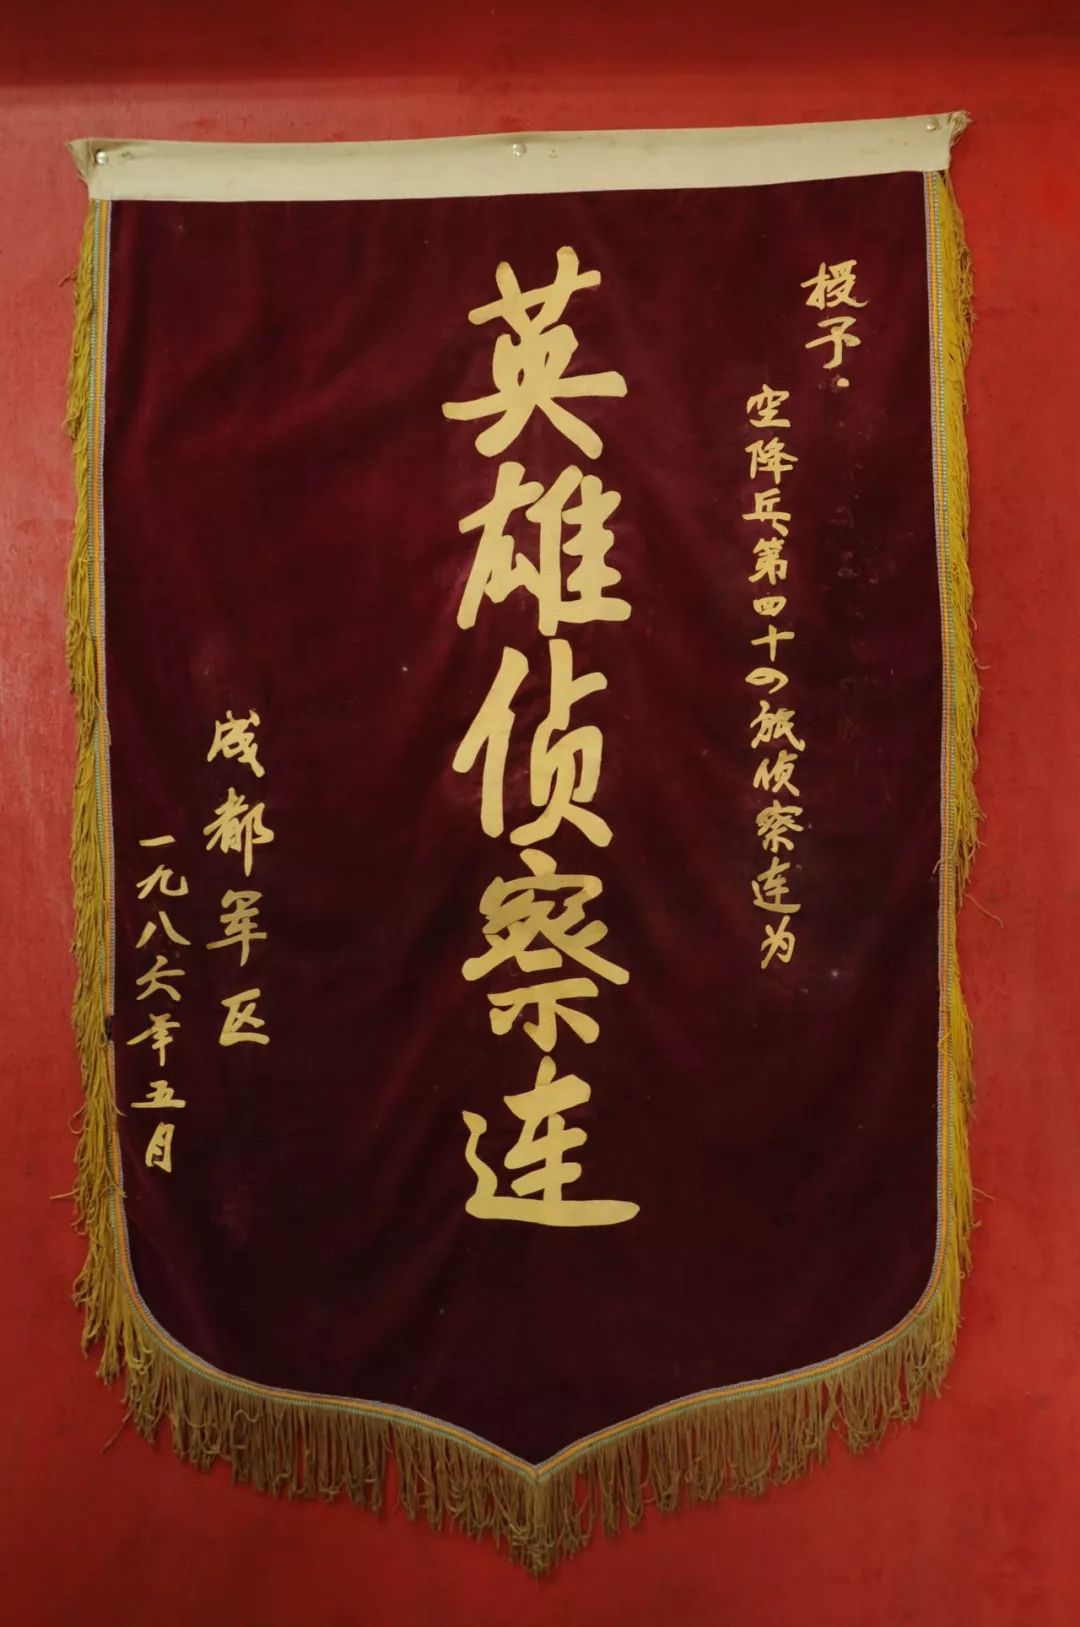 授予·
空降兵第四十四旅侦察连为
英雄侦察连
成都军区
一九八六年五月